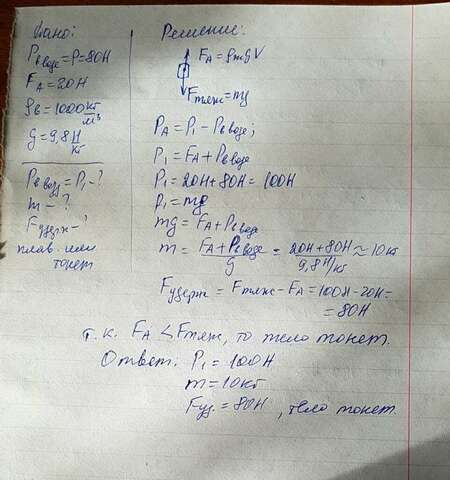 Дано:
Pв воде = P = 80Н
FА = 20Н
ρв = 1000 кг/м³
g = 9,8 Н/кг
Pв возд = P₁ - ?
m - ?
Fудерж - ?
плав. или
тонет
Решение:
FА = ρжgV
Fтяж = mg
PА = P₁ - Pв воде;
P₁ = FА + Pв воде
P₁ = 20Н + 80Н = 100Н
P₁ = mg
mg = FА + Pв воде
m = (FА + Pв воде)/g = (20Н + 80Н)/(9,8 Н/кг) ≈ 10кг
Fудерж = Fтяж - FА = 100Н - 20Н =
= 80Н
т.к. FА < Fтяж, то тело тонет.
Ответ: P₁ = 100Н
m = 10кг
Fуд. = 80Н, тело тонет.